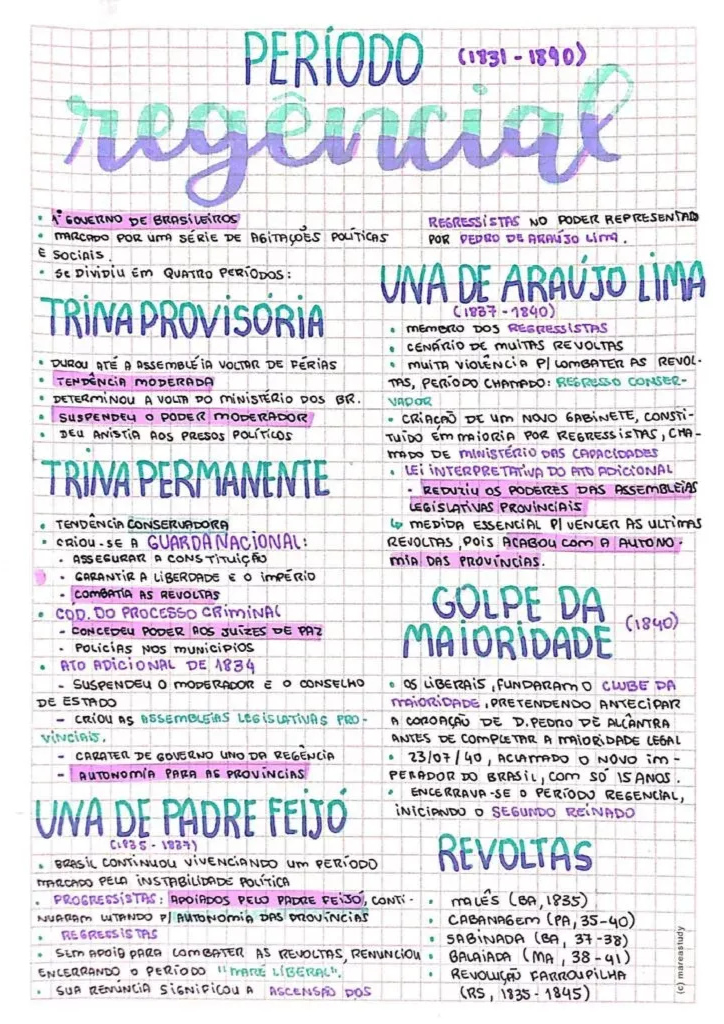 PERÍODO (1831 - 1890)
regêncial
• 1º GOVERNO DE BRASILEIROS
• MARCADO POR UMA SÉRIE DE AGITAÇÕES POLÍTICAS
E SOCIAIS.
• SE DIVIDIU EM QUATRO PERÍODOS:
TRINA PROVISÓRIA
• DUROU ATÉ A ASSEMBLÉIA VOLTAR DE FÉRIAS
• TENDÊNCIA MODERADA
• DETERMINOU A VOLTA DO MINISTÉRIO DOS BR.
• SUSPENDEU O PODER MODERADOR
• DEU ANISTIA AOS PRESOS POLÍTICOS
TRINA PERMANENTE
• TENDÊNCIA CONSERVADORA
• CRIOU-SE A GUARDA NACIONAL:
- ASSEGURAR A CONSTITUIÇÃO
- GARANTIR A LIBERDADE E O IMPÉRIO
- COMBATIA AS REVOLTAS
• CÓD. DO PROCESSO CRIMINAL
- CONCEDEU PODER AOS JUÍZES DE PAZ
- POLICIAS NOS MUNICIPIOS
• ATO ADICIONAL DE 1834
- SUSPENDEU O MODERADOR E O CONSELHO
DE ESTADO
- CRIOU AS ASSEMBLEIAS LEGISLATIVAS PRO-
VINCIAIS.
- CARATER DE GOVERNO UNO DA REGÊNCIA
- AUTONOMIA PARA AS PROVÍNCIAS
UNA DE PADRE FEIJÓ
(1835 - 1837)
• BRASIL CONTINUOU VIVENCIANDO UM PERÍODO
MARCADO PELA INSTABILIDADE POLÍTICA
• PROGRESSISTAS: APOIADOS PELO PADRE FEIJÓ, CONTI-
NUARAM LUTANDO P/ AUTONOMIA DAS PROVÍNCIAS
• REGRESSISTAS
• SEM APOIO PARA COMBATER AS REVOLTAS, RENUNCIOU
ENCERRANDO O PERÍODO "MARÉ LIBERAL".
• SUA RENÚNCIA SIGNIFICOU A ASCENSÃO DOS
REGRESSISTAS NO PODER REPRESENTADO
POR PEDRO DE ARAÚJO LIMA.
UNA DE ARAÚJO LIMA
(1837 - 1840)
• MEMBRO DOS REGRESSISTAS
• CENÁRIO DE MUITAS REVOLTAS
• MUITA VIOLÊNCIA P/ COMBATER AS REVOL-
TAS, PERÍODO CHAMADO: REGRESSO CONSER-
VADOR
• CRIAÇÃO DE UM NOVO GABINETE, CONSTI-
TUÍDO EM MAIORIA POR REGRESSISTAS, CHA-
MADO DE MINISTÉRIO DAS CAPACIDADES
• LEI INTERPRETATIVA DO ATO ADICIONAL
- REDUZIU OS PODERES DAS ASSEMBLEIAS
LEGISLATIVAS PROVINCIAIS
↳ MEDIDA ESSENCIAL P/ VENCER AS ULTIMAS
REVOLTAS, POIS ACABOU COM A AUTONO-
MIA DAS PROVÍNCIAS.
GOLPE DA
MAIORIDADE (1840)
• OS LIBERAIS, FUNDARAM O CLUBE DA
MAIORIDADE, PRETENDENDO ANTECIPAR
A COROAÇÃO DE D. PEDRO DE ALCÂNTRA
ANTES DE COMPLETAR A MAIORIDADE LEGAL
• 23/07/40, ACLAMADO O NOVO IM-
PERADOR DO BRASIL, COM SÓ 15 ANOS.
• ENCERRAVA-SE O PERÍODO REGENCIAL,
INICIANDO O SEGUNDO REINADO
REVOLTAS
• MALÊS (BA, 1835)
• CABANAGEM (PA, 35-40)
• SABINADA (BA, 37-38)
• BALAIADA (MA, 38-41)
• REVOLUÇÃO FARROUPILHA
(RS, 1835 - 1845)
(c) mareastudy